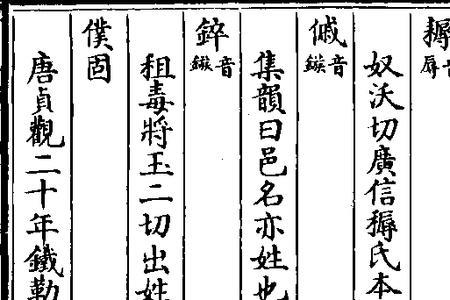 耨音辱
奴沃切廣信耨氏本
傶音鏃
集韻曰邑名亦姓也
錊音鏃
租毒將玉二切出姓
僕固
唐貞觀二十年鐵勒